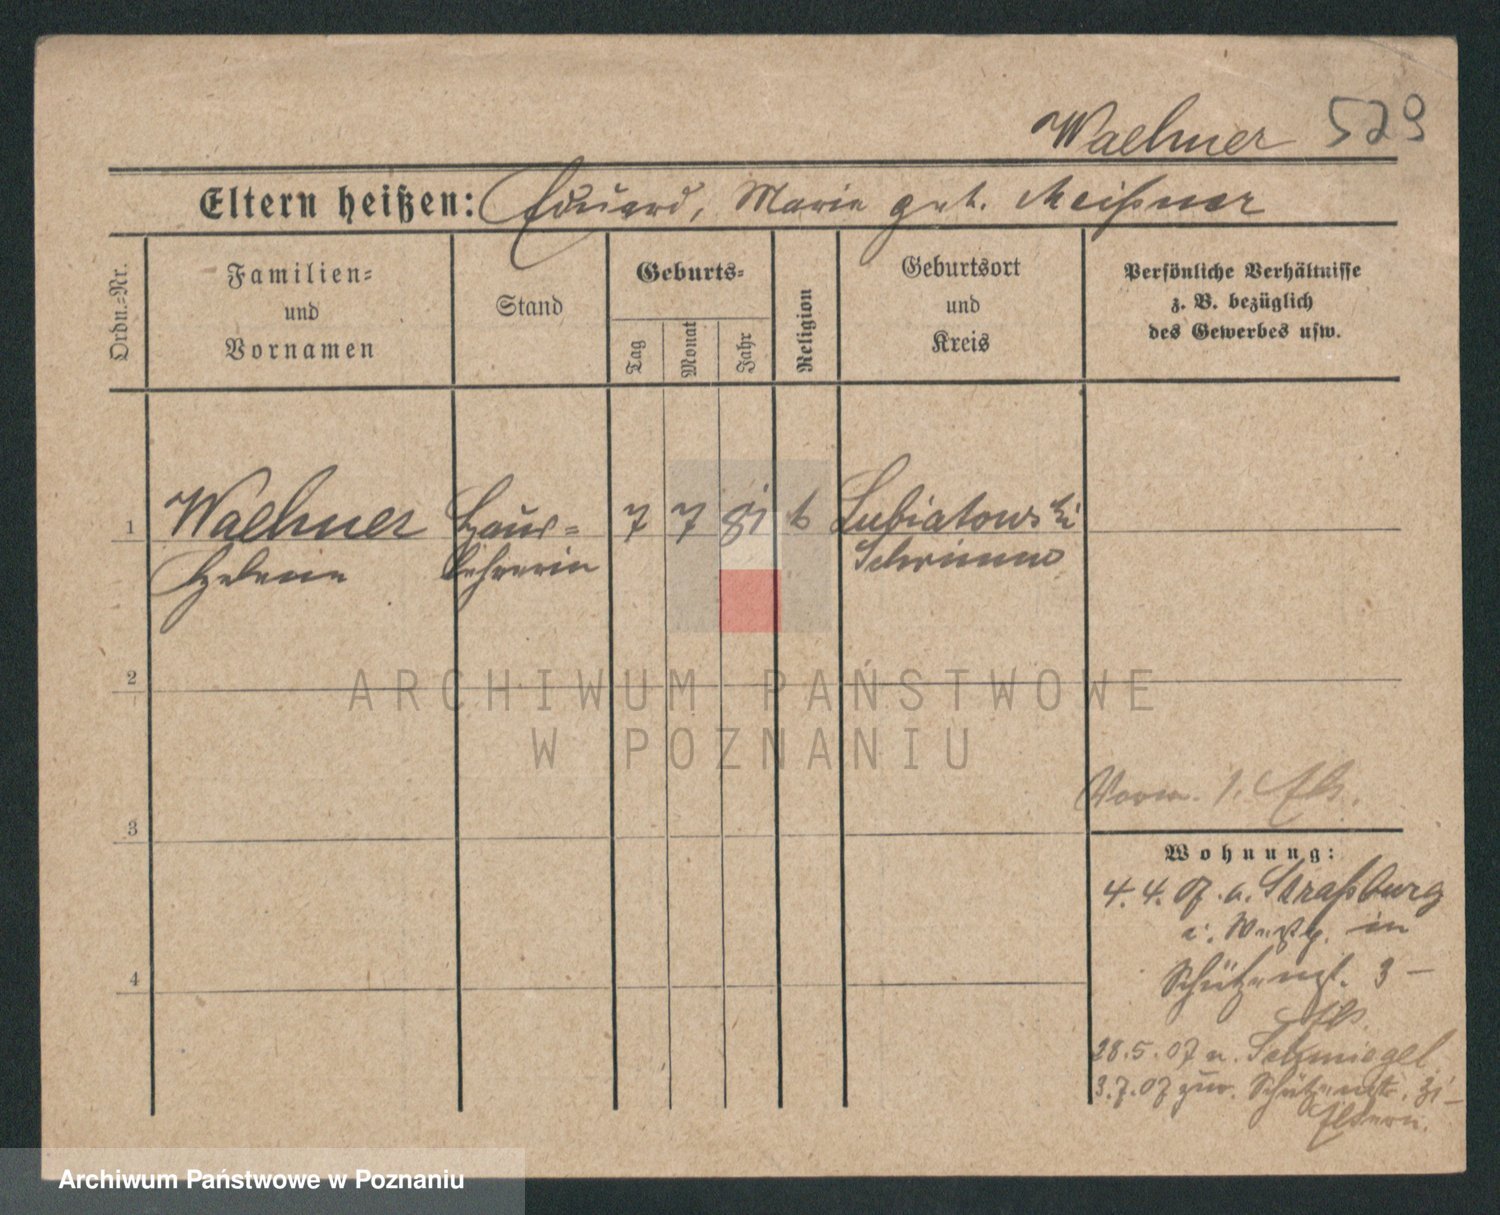 Waehner 529
Eltern heißen: Eduard, Marie geb. Meißner
Ordn.=Nr.
Familien=
und
Vornamen
Stand
Geburts=
Tag
Monat
Jahr
Religion
Geburtsort
und
Kreis
Persönliche Verhältnisse
z. B. bezüglich
des Gewerbes usw.
1 Waehner Haus= 7 7 81 Lubiatowski
Helene lehrerin Schrimm
2
3
4
Vorm.
Wohnung:
4. 4. 07. a. Straßburg
i. Westp. in
Schützenst. 3
Els.
28.5.07 n. Schmiegel
3.7.07 zur. Schützenstr. 31
Eltern.
ARCHIWUM PAŃSTWOWE
W POZNANIU
Archiwum Państwowe w Poznaniu